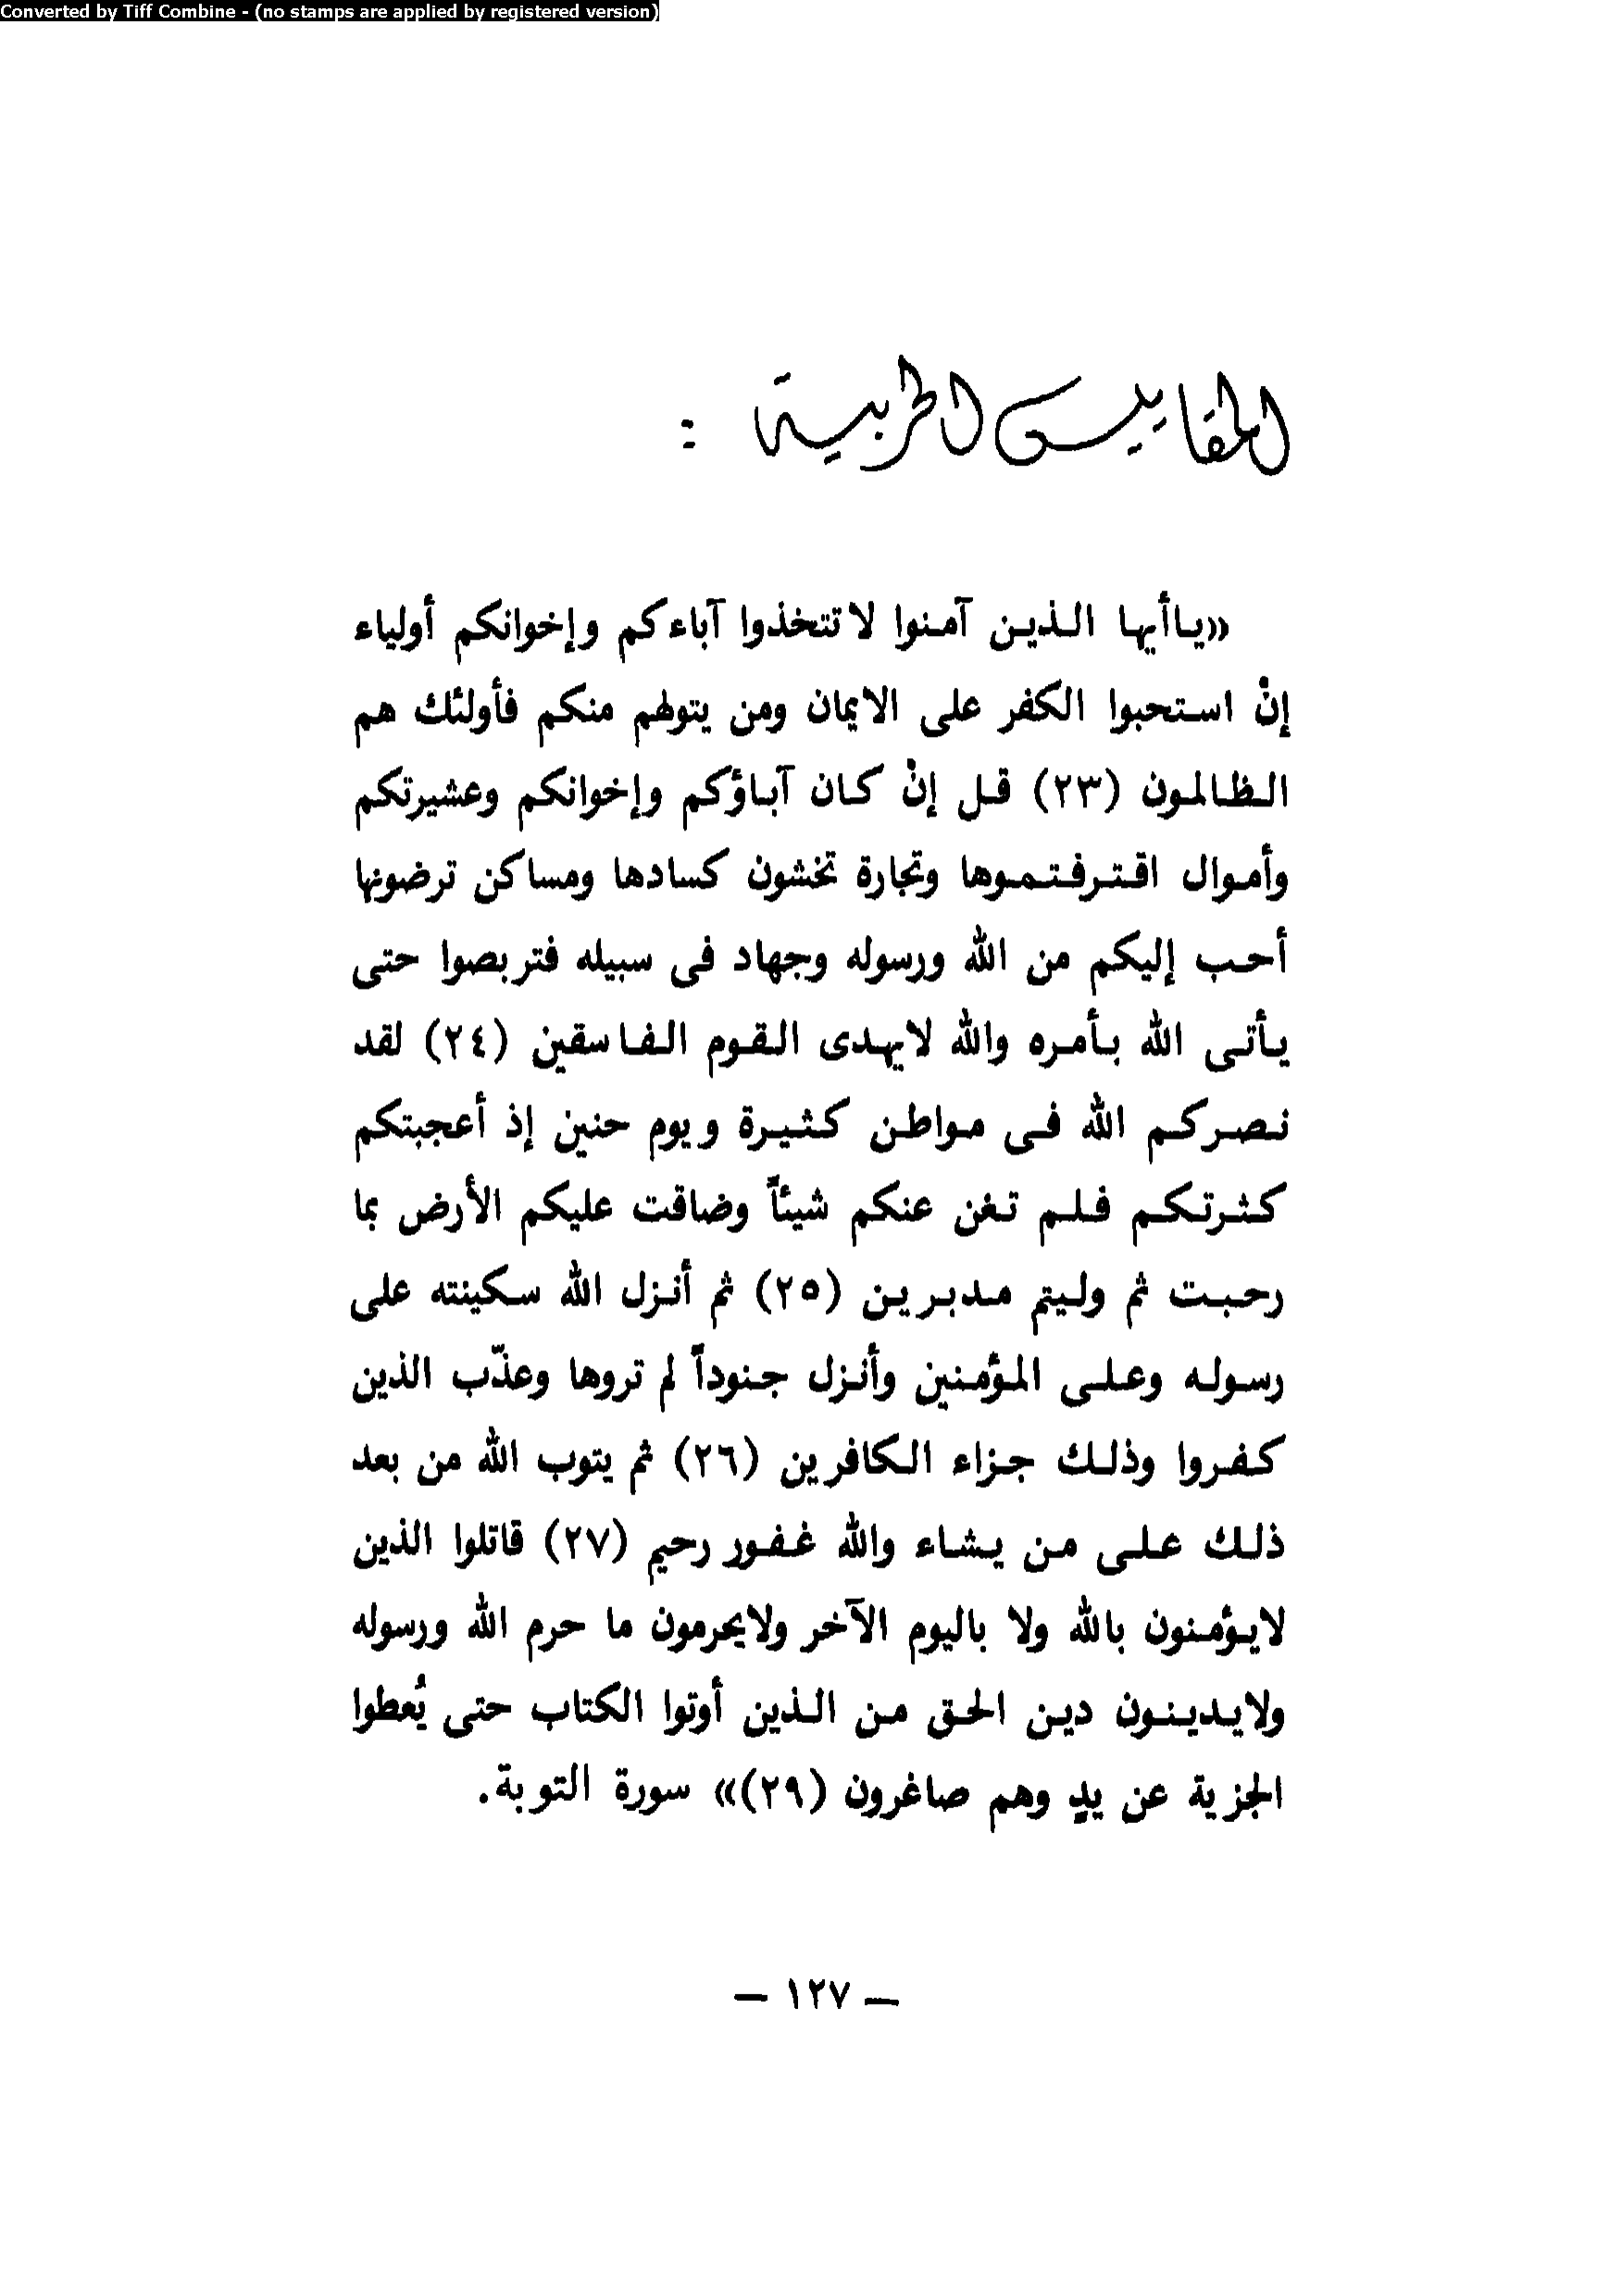 Converted by Tiff Combine - (no stamps are applied by registered version)
المقاييس الحربية :
«ياأيها الذين آمنوا لاتتخذوا آباءكم وإخوانكم أولياء
إنْ استحبوا الكفر على الايمان ومن يتولهم منكم فأولئك هم
الظالمون (٢٣) قل إنْ كان آباؤكم وإخوانكم وعشيرتكم
وأموال اقترفتموها وتجارة تخشون كسادها ومساكن ترضونها
أحب إليكم من الله ورسوله وجهاد فى سبيله فتربصوا حتى
يأتى الله بأمره والله لايهدى القوم الفاسقين (٢٤) لقد
نصركم الله فى مواطن كثيرة ويوم حنين إذ أعجبتكم
كثرتكم فلم تغن عنكم شيئاً وضاقت عليكم الأرض بما
رحبت ثم وليتم مدبرين (٢٥) ثم أنزل الله سكينته على
رسوله وعلى المؤمنين وأنزل جنوداً لم تروها وعذّب الذين
كفروا وذلك جزاء الكافرين (٢٦) ثم يتوب الله من بعد
ذلك على من يشاء والله غفور رحيم (٢٧) قاتلوا الذين
لايؤمنون بالله ولا باليوم الآخر ولايحرمون ما حرم الله ورسوله
ولايدينون دين الحق من الذين أوتوا الكتاب حتى يُعطوا
الجزية عن يدٍ وهم صاغرون (٢٩)» سورة التوبة.
— ١٢٧ —